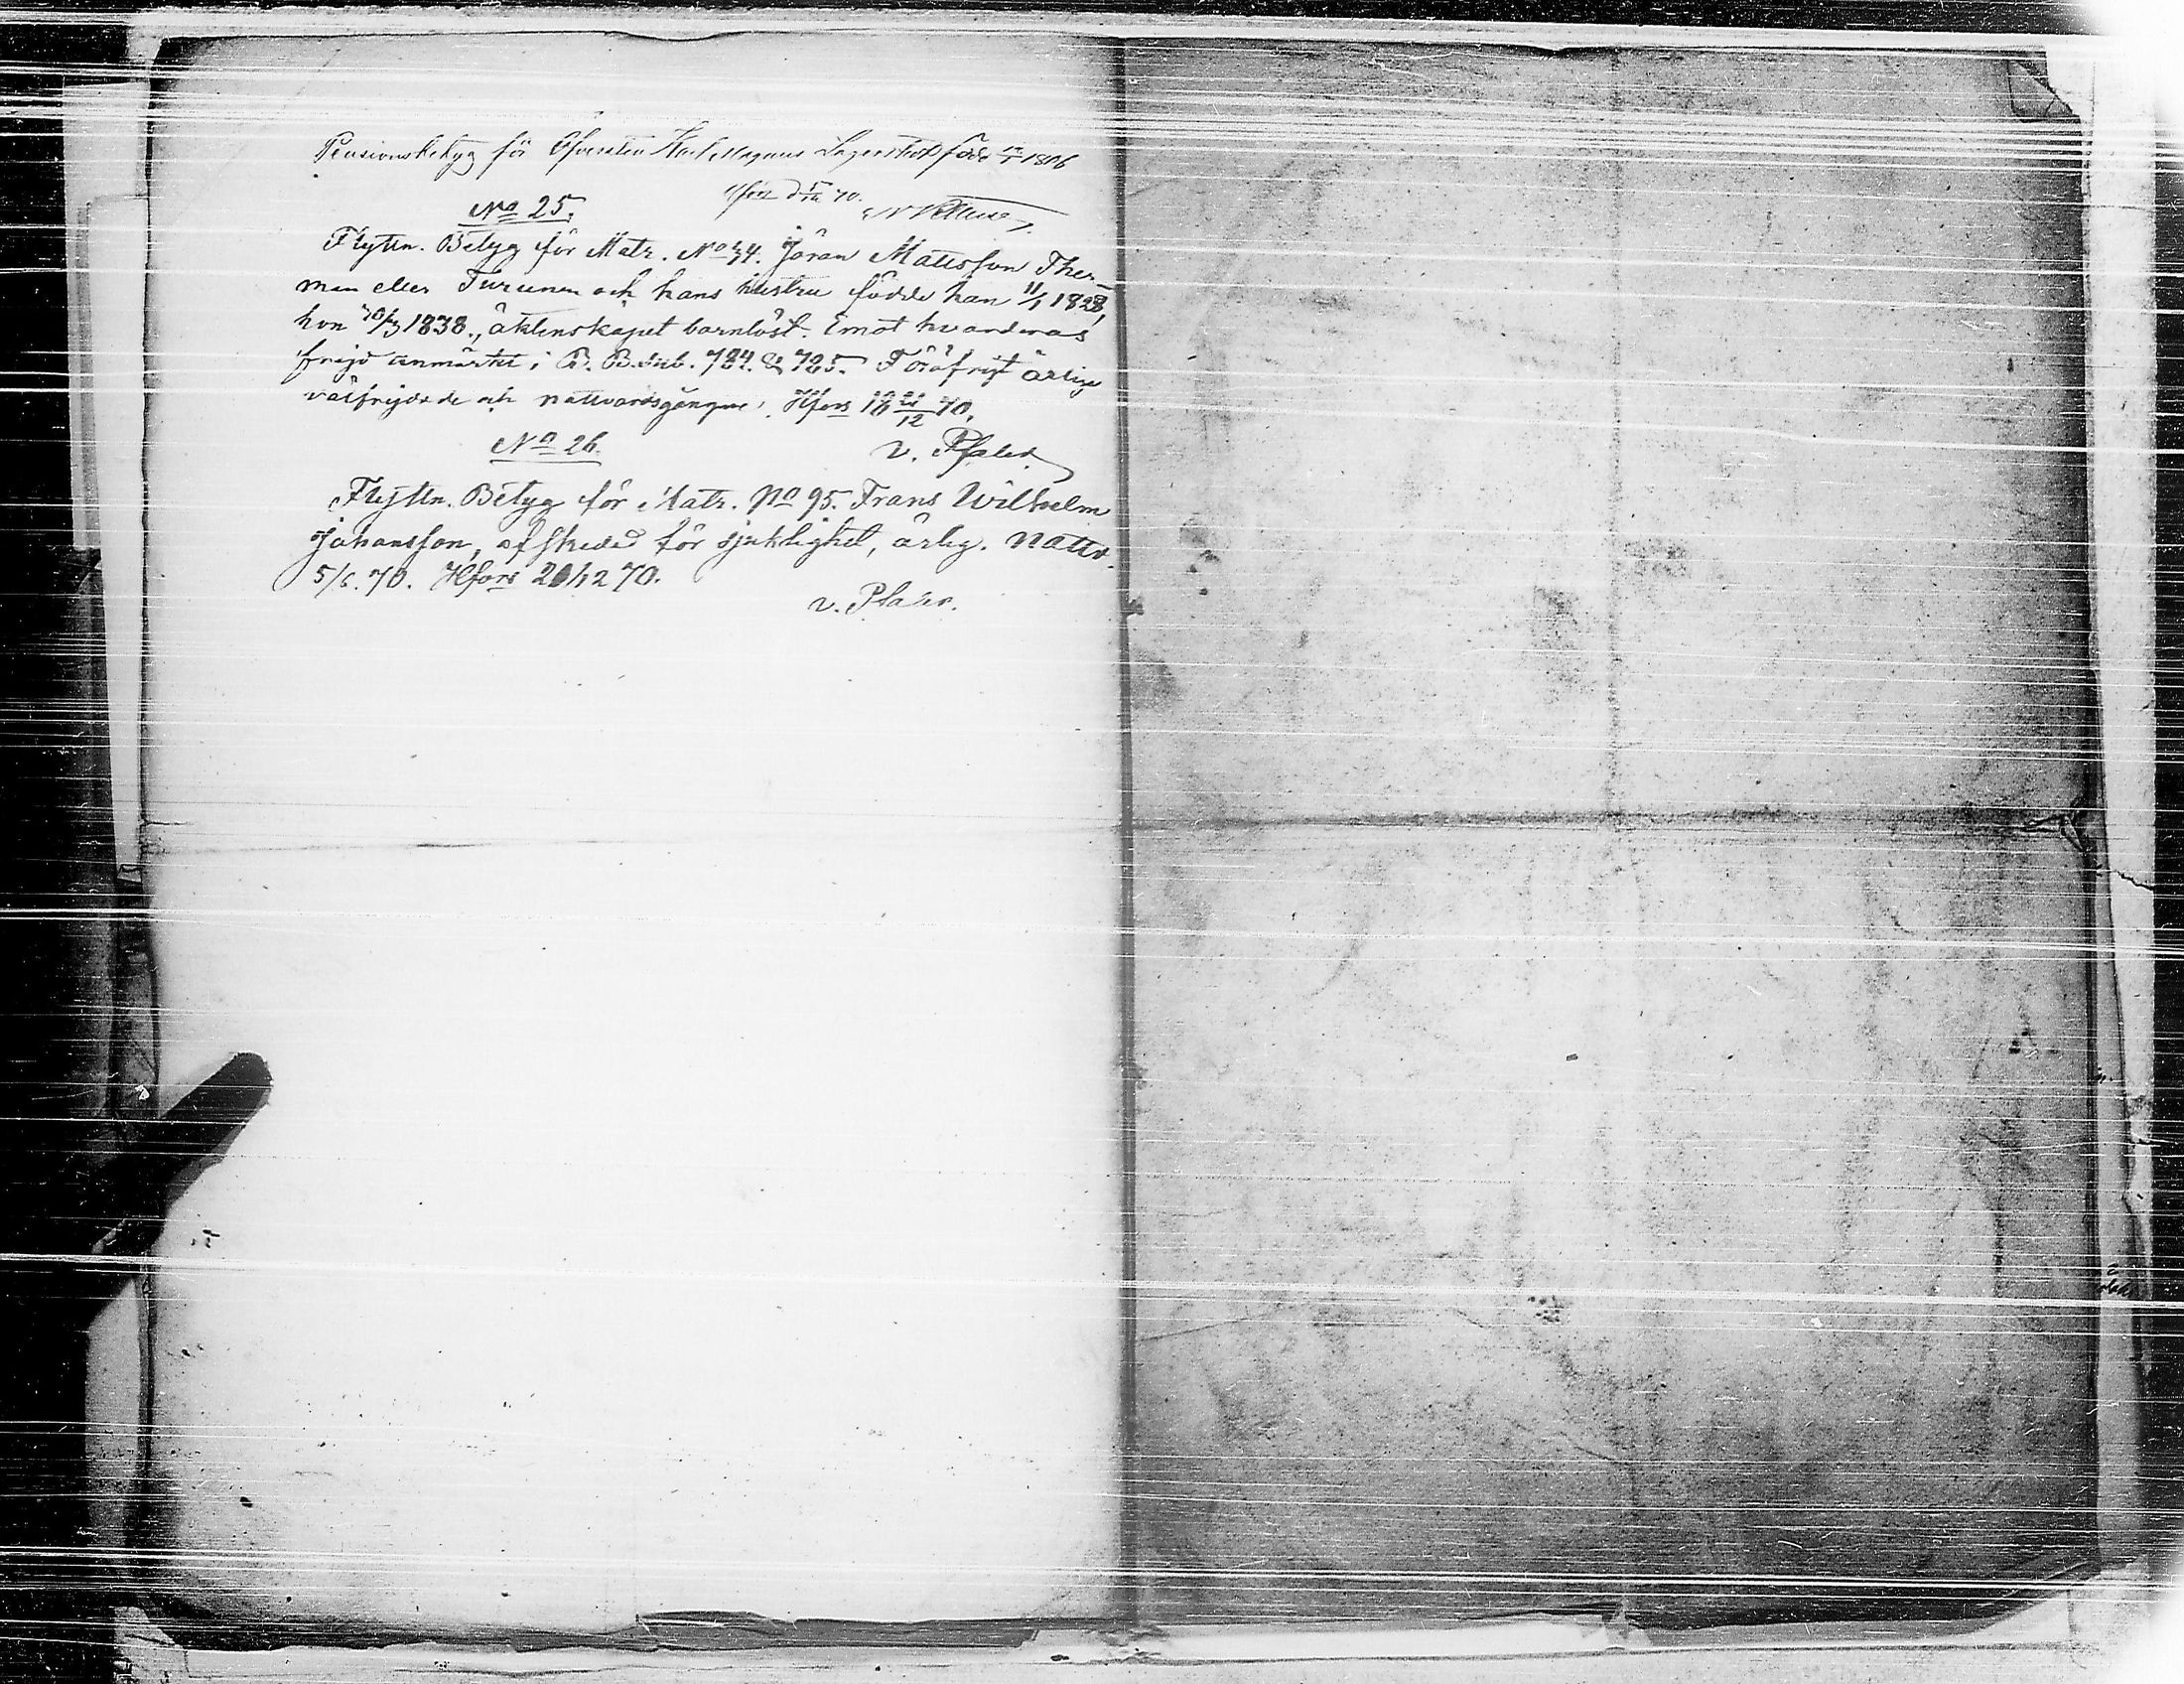 Pensionsbetyg för Öfversten Karl Magnus född 1806
Hfors d 70.
No 25.
Flyttn. Betyg för Matr. No 34. Jöran Mattsson Ther-
man eller Turunen och hans hustru födde han 11/1 1828,
hon 1838., äktenskapet barnlöst. Emot hvarderas
frejd anmärkt i B. B. sub. 724. & 725. Föröfrigt ärlige
välfrejdade och nattvardsgångne. Hfors 18 21/12 70.
v. Pfaler
No 26.
Flyttn. Betyg för Matr. No 95. Frans Wilhelm
Johansson, afskedad för sjuklighet, ärlig. Nattv.
5/6. 70. Hfors 70.
v. Pfaler.